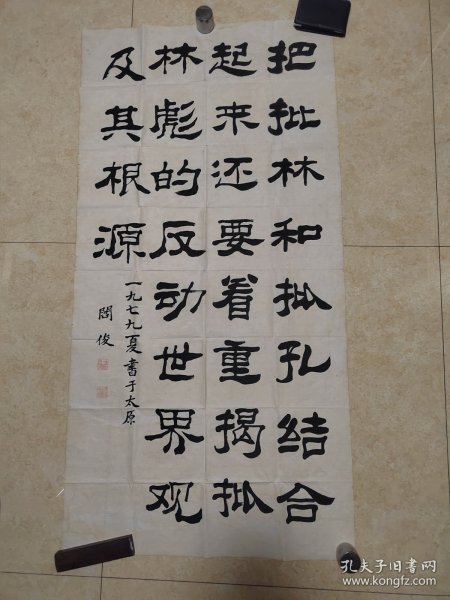 把批林和批孔结合
起来还要着重揭批
林彪的反动世界观
及其根源
一九七九夏书于太原
闗俊
孔夫子旧书网
www.kongfz.com